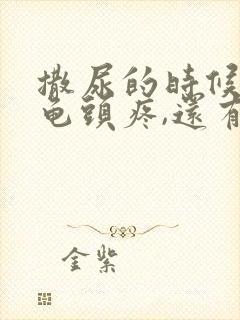 撒尿的時候
龟頭疼,還有
金紫